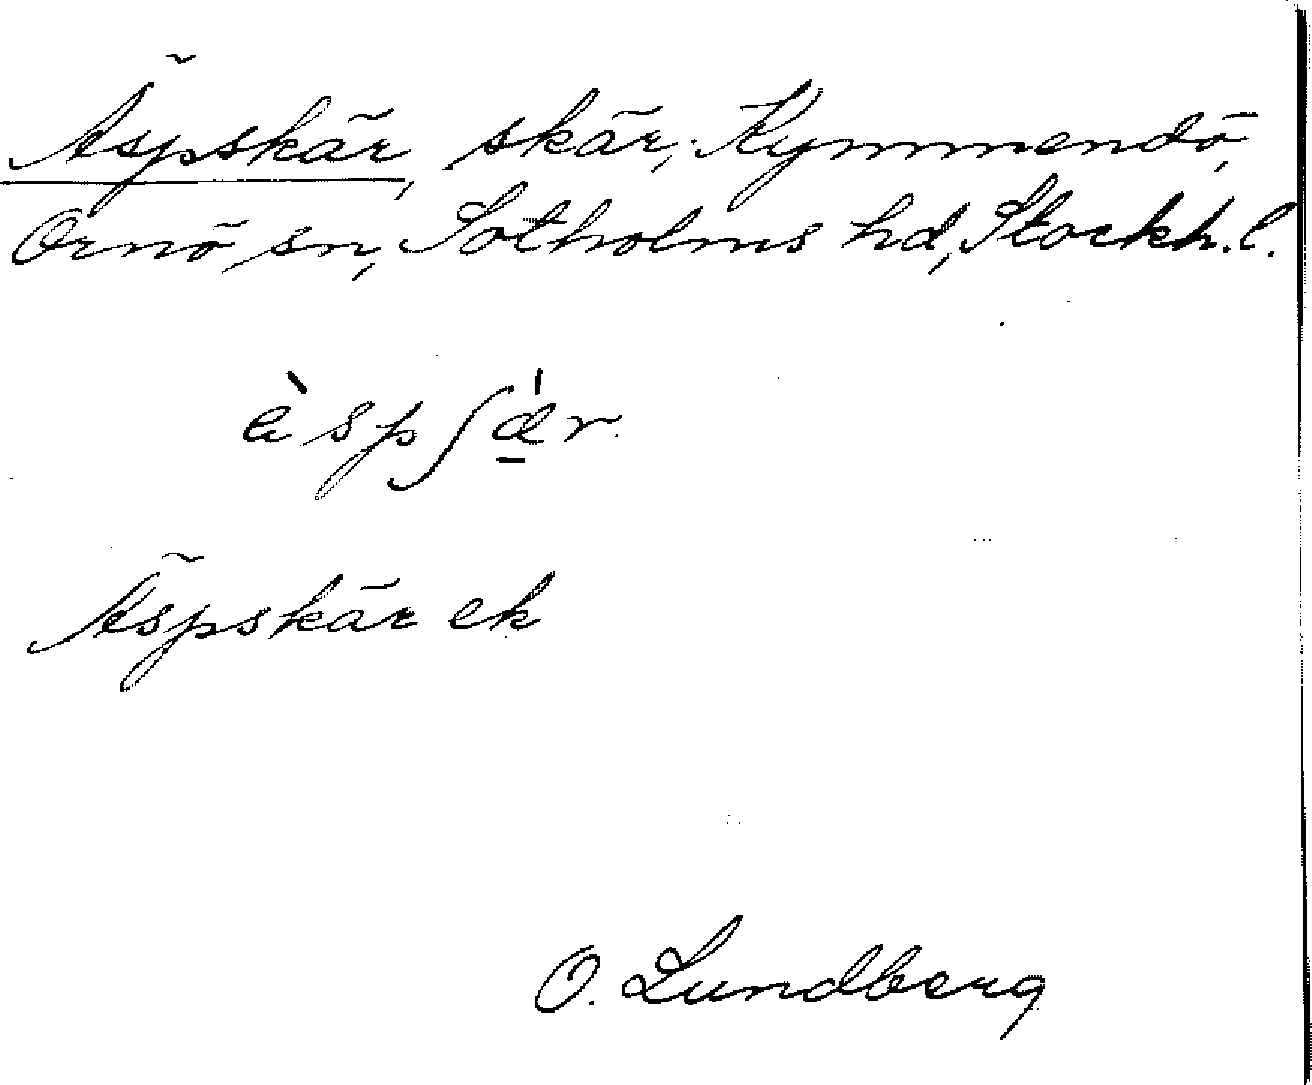 Äspskär, skär, Kymmendö,
Ornö sn, Sotholms hd, Stockh. l.
èspʃæ̲̍r
Äspskär ek
O. Lundberg